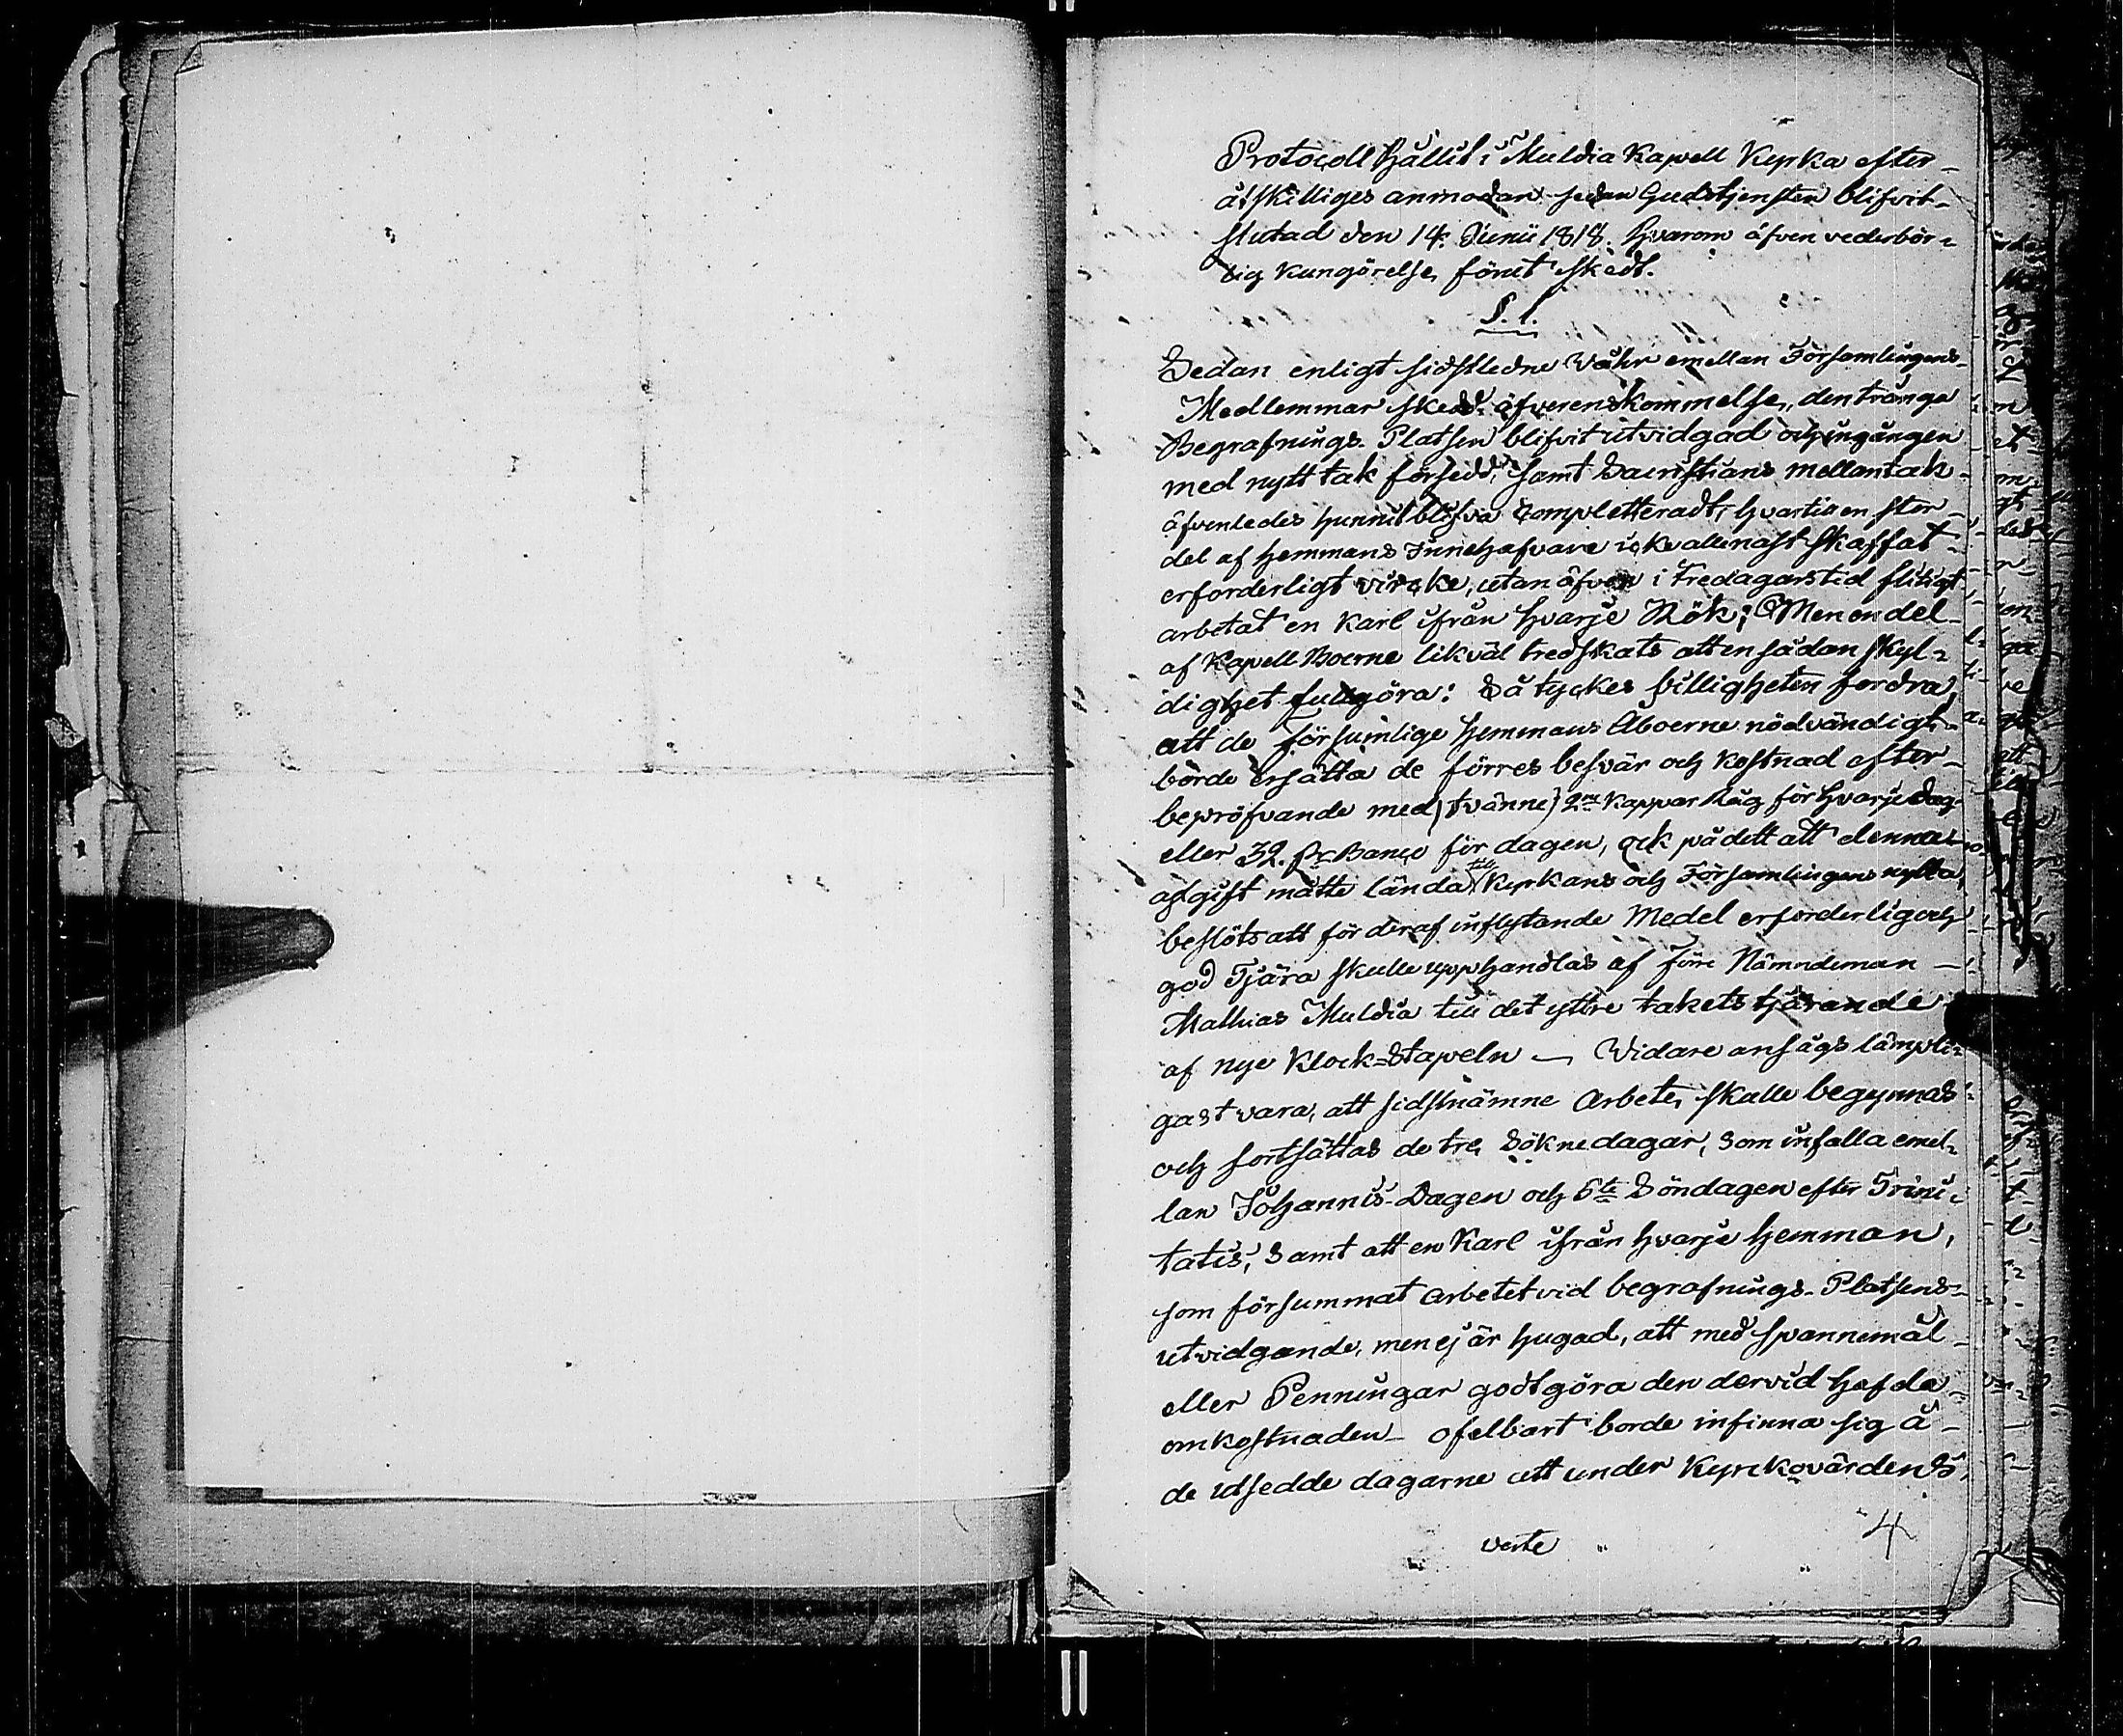 Protocoll hållit i Muldia Kapell Kyrka efter
åtskilliges anmodan sedan Gudstjensten blifvit
slutad den 14. Junii 1818. hvarom äfven vederbör=
lig kungörelse förut skedt.
§. 1.
Sedan enligt sidstledne Währ emellan Församlingens
Medlemmar skedd äfverenskommelse, den trånga
Begrafnings-Platsen blifvit utvidgad och ingången
med nytt tak försedd, samt Sacristians mellantak
äfvenledes hunnit blifva completteradt, hvartil en stor
del af hemmans Innehafvare icke allenast skaffat
erforderligt vircke, utan äfven i tredagars tid flitigt
arbetat en Karl ifrån hvarje Rök; Men en del
af Kapell Boerne likväl tredskats att en sådan skyl=
dighet fullgöra: Så tyckes billigheten fordra,
att de försumlige hemmans Åboerne nödvändigt
borde ersätta de förres besvär och kostnad efter
bepröfvande med (tvänne) 2ne Kappar Råg för hvarje dag
eller 32. s Banco för dagen, ock på dett att denna
afgift måtte lända till Kyrkans och Församlingens nytta,
beslöts att för deraf inflytande Medel erforderlig och
god Tjära skulle upphandlas af förre Nämndeman
Mathias Muldia till det yttre takets tjärande
af nye Klock=Stapeln — Vidare ansågs lämpli=
gast vara, att sidstnämne Arbete, skulle begynnas
och fortsättas de tre Söknedagar, som infalla emel=
lan Johannis-Dagen och 6te Söndagen efter Trini=
tatis, samt att en Karl ifrån hvarje hemman,
som försummat Arbetet vid begrafnings-Platsens
utvidgande, men ej är hugad, att med spannemål
eller Penningar godtgöra den dervid hafda
omkostnaden ofelbart borde infinna sig å
de utsedde dagarne att under Kyrckovärdens
verte
4